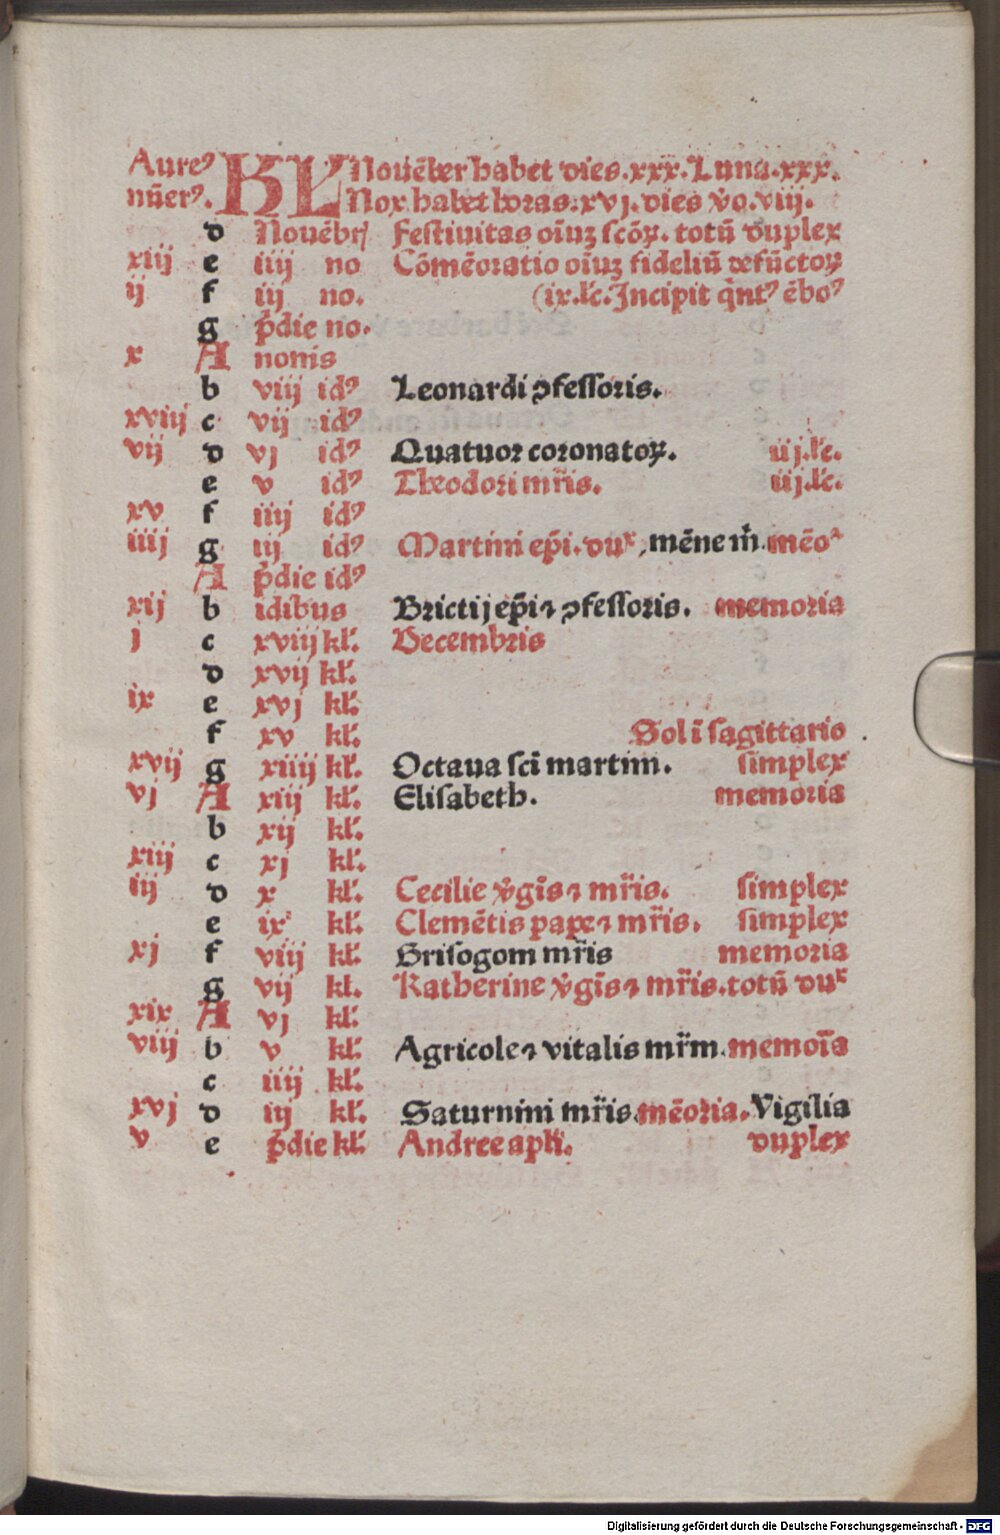 Aureꝰ KL Nouēber habet dies.xxx.Luna.xxx.
nūerꝰ. Nox habet horas.xvj.dies v̓o.viij.
d Nouēbrꝭ Festiuitas oīuꝫ scōꝝ. totū duplex
xiij e iiij no Cōmēoratio oīuꝫ fideliū defūctoꝝ
ij f iij no. (ix.lc̄.Incipit q̄ntꝰ ēboꝰ
g p̄die no.
x A nonis
b viij idꝰ Leonardi ꝯfessoris.
xviij c vij idꝰ
vij d vj idꝰ Quatuor coronatoꝝ. iij.lc̄.
e v idꝰ Theodori mr̄is. iij.lc̄.
xv f iiij idꝰ
iiij g iij idꝰ Martini ep̄i.duˣ,mēne m̄.mēoᵃ
A p̄die idꝰ
xij b idibus Brictij ep̄i ⁊ ꝯfessoris. memoria
j c xviij kl̄. Decembris
d xvij kl̄.
ix e xvj kl̄.
f xv kl̄. Sol ī sagittario
xvij g xiiij kl̄. Octaua scī martini. simplex
vj A xiij kl̄. Elisabeth. memoria
b xij kl̄.
xiij c xj kl̄.
iij d x kl̄. Cecilie v̓gīs ⁊ mr̄is. simplex
e ix kl̄. Clemētis pape ⁊ mr̄is. simplex
xj f viij kl̄. Grisogoni mr̄is memoria
g vij kl. Katherine v̓gīs ⁊ mr̄is.totū duˣ
xix A vj kl̄.
viij b v kl̄. Agricole ⁊ vitalis mr̄m.memoīa
c iiij kl̄.
xvj d iij kl̄. Saturnini mr̄is.mēoria.Vigilia
v e p̄die kl̄. Andree apl̄i. duplex
Digitalisierung gefördert durch die Deutsche Forschungsgemeinschaft - DFG